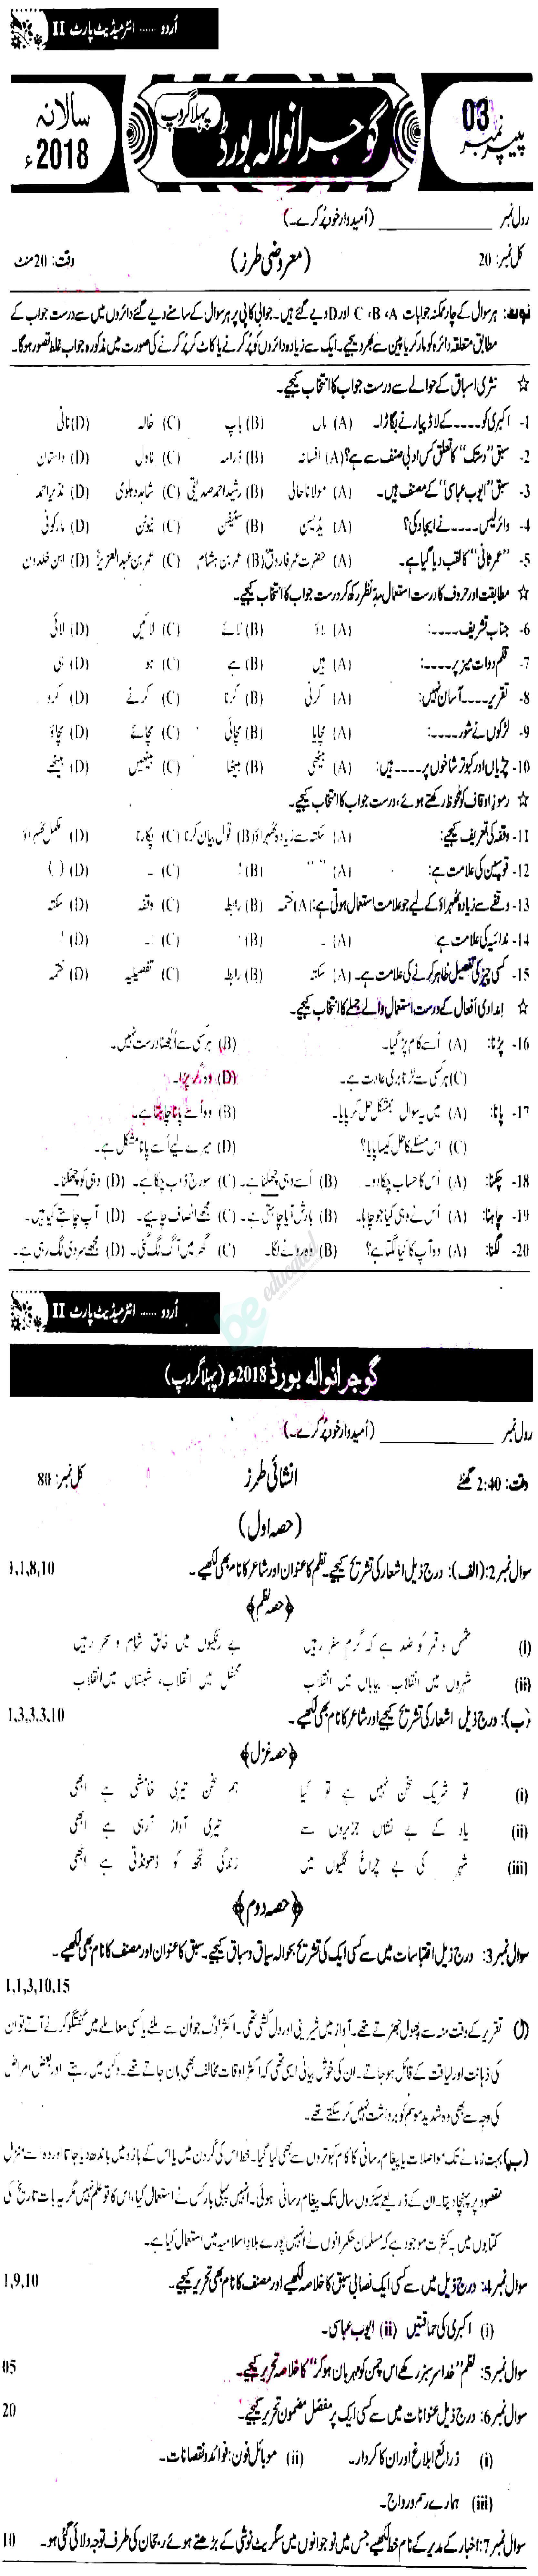 اُردو ...... انٹرمیڈیٹ پارٹ II
پیپر نمبر 03
گوجرانوالہ بورڈ
پہلا گروپ
سالانہ 2018ء
رول نمبر ____________ (اُمیدوار خود پُر کرے۔)
کل نمبر: 20 (معروضی طرز) وقت: 20 منٹ
نوٹ: ہر سوال کے چار ممکنہ جوابات A، B، C اور D دیے گئے ہیں۔ جوابی کاپی پر ہر سوال کے سامنے دیے گئے دائروں میں سے درست جواب کے
مطابق متعلقہ دائرہ کو مارکر یا پین سے بھر دیجیے۔ ایک سے زیادہ دائروں کو پُر کرنے یا کاٹ کر پُر کرنے کی صورت میں مذکورہ جواب غلط تصور ہوگا۔
☆ نثری اسباق کے حوالے سے درست جواب کا انتخاب کیجیے۔
1- اکبری کو۔۔۔۔ کے لاڈ پیار نے بگاڑا۔ (A) ماں (B) باپ (C) خالہ (D) نانی
2- سبق "دستک" کا تعلق کس ادبی صنف سے ہے؟ (A) افسانہ (B) ڈرامہ (C) ناول (D) داستان
3- سبق "ایوب عباسی" کے مصنف ہیں۔ (A) مولانا حالی (B) رشید احمد صدیقی (C) شاہد دہلوی (D) نذیر احمد
4- وائرلیس۔۔۔۔ نے ایجاد کی؟ (A) ایڈیسن (B) سٹیفن (C) نیوٹن (D) مارکونی
5- "عمر ثانی" کا لقب دیا گیا ہے۔ (A) حضرت عمر فاروقؓ (B) عمر بن ہشام (C) عمر بن عبدالعزیزؒ (D) ابن خلدون
☆ مطابقت اور حروف کا درست استعمال مدِنظر رکھ کر درست جواب کا انتخاب کیجیے۔
6- جناب تشریف۔۔۔۔: (A) لاؤ (B) لائے (C) لائیں (D) لائی
7- قلم دوات میز پر۔۔۔۔: (A) ہیں (B) ہے (C) ہو (D) ہی
8- تقریر۔۔۔۔ آسان نہیں: (A) کرنی (B) کرنا (C) کرنے (D) کرو
9- لڑکوں نے شور۔۔۔۔: (A) مچایا (B) مچائی (C) مچائے (D) مچاؤ
10- چڑیاں اور کبوتر شاخوں پر۔۔۔۔ ہیں: (A) بیٹھی (B) بیٹھا (C) بیٹھیں (D) بیٹھے
☆ رموزِ اوقاف کو ملحوظ رکھتے ہوئے، درست جواب کا انتخاب کیجیے۔
11- وقفہ کی تعریف کیجیے: (A) سکتہ سے زیادہ ٹھہراؤ (B) قول بیان کرنا (C) پکارنا (D) مکمل ٹھہراؤ
12- قوسین کی علامت ہے: (A) " " (B) ! (C) ۔ (D) ( )
13- وقفے سے زیادہ ٹھہراؤ کے لیے جو علامت استعمال ہوتی ہے: (A) ختمہ (B) رابطہ (C) وقفہ (D) سکتہ
14- ندائیہ کی علامت ہے: (A) ۔ (B) ' (C) :۔ (D) !
15- کسی چیز کی تفصیل ظاہر کرنے کی علامت ہے۔ (A) سکتہ (B) رابطہ (C) تفصیلیہ (D) ختمہ
☆ امدادی افعال کے درست استعمال والے جملے کا انتخاب کیجیے۔
16- پڑنا: (A) اُسے کام پڑ گیا۔ (B) ہر کسی سے اُلجھنا درست نہیں۔
(C) ہر کسی سے لڑنا بری عادت ہے۔ (D) وہ گر پڑا۔
17- پانا: (A) میں یہ سوال بمشکل حل کر پایا۔ (B) وہ اُسے پانا چاہتا ہے۔
(C) اس مسئلے کا حل کیسا پایا؟ (D) میرے لیے اُسے پانا مشکل ہے۔
18- چکنا: (A) اُس کا حساب چکا دو۔ (B) اُسے وہی چکھنا ہے۔ (C) سورج ڈوب چکا ہے۔ (D) وہی کو چکھنا۔
19- چاہنا: (A) اُس نے وہی کیا جو چاہا۔ (B) بارش آیا چاہتی ہے۔ (C) مجھے انصاف چاہیے۔ (D) آپ چاہتے کیا ہیں۔
20- لگنا: (A) وہ آپ کا کیا لگتا ہے؟ (B) وہ رونے لگا۔ (C) گھر میں آگ لگ گئی۔ (D) مجھے سردی لگ رہی ہے۔
educated
اُردو ...... انٹرمیڈیٹ پارٹ II
گوجرانوالہ بورڈ 2018ء (پہلا گروپ)
رول نمبر ____________ (اُمیدوار خود پُر کرے۔)
وقت: 2:40 گھنٹے انشائی طرز کل نمبر: 80
(حصہ اول)
سوال نمبر 2: (الف): درج ذیل اشعار کی تشریح کیجیے۔ نظم کا عنوان اور شاعر کا نام بھی لکھیے۔ 1,1,8,10
﴿حصہ نظم﴾
(i) شمس و قمر کو ضد ہے کہ گرمِ سفر رہیں بے رنگیوں میں خالقِ شام و سحر رہیں
(ii) شہروں میں انقلاب، بیاباں میں انقلاب محفل میں انقلاب، شبستاں میں انقلاب
(ب): درج ذیل اشعار کی تشریح کیجیے اور شاعر کا نام بھی لکھیے۔ 1,3,3,3,10
﴿حصہ غزل﴾
(i) تو شریکِ سخن نہیں ہے تو کیا ہم سخن تیری خامشی ہے ابھی
(ii) یاد کے بے نشاں جزیروں سے تیری آواز آ رہی ہے ابھی
(iii) شہر کی بے چراغ گلیوں میں زندگی تجھ کو ڈھونڈتی ہے ابھی
﴿حصہ دوم﴾
سوال نمبر 3: درج ذیل اقتباسات میں سے کسی ایک کی تشریح بحوالہ سیاق و سباق کیجیے۔ سبق کا عنوان اور مصنف کا نام بھی لکھیے۔
1,1,3,10,15
(ا) تقریر کے وقت منہ سے پھول جھڑتے تھے۔ آواز میں شیرینی اور دل کشی تھی۔ اکثر لوگ جو اُن سے ملنے یا کسی معاملے میں گفتگو کرنے آتے تو ان
کی ذہانت اور لیاقت کے قائل ہو جاتے۔ ان کی خوش بیانی ایسی تھی کہ اکثر اوقات مخالف بھی مان جاتے تھے۔ دکن میں رہتے اور بعض امراض
کی وجہ سے بھی وہ شدید موسم کو برداشت نہیں کر سکتے تھے۔
(ب) بہت زمانے تک مواصلات یا پیغام رسانی کا کام کبوتروں سے بھی لیا گیا۔ خط اس کی گردن میں یا اس کے بازو میں باندھ دیا جاتا اور وہ اسے منزل
مقصود پر پہنچا دیتا۔ ان کے ذریعے سیکڑوں سال تک پیغام رسانی ہوئی۔ انہیں پہلی بار کس نے استعمال کیا، اس کا تو علم نہیں مگر یہ بات تاریخ کی
کتابوں میں بہ کثرت موجود ہے کہ مسلمان حکمرانوں نے انہیں پورے بلادِ اسلامیہ میں استعمال کیا ہے۔
سوال نمبر 4: درج ذیل میں سے کسی ایک نصابی سبق کا خلاصہ لکھیے اور مصنف کا نام بھی تحریر کیجیے۔ 1,9,10
(i) اکبری کی حماقتیں (ii) ایوب عباسی۔
سوال نمبر 5: نظم "خدا سرسبز رکھے اس چمن کو مہرباں ہو کر" کا خلاصہ تحریر کیجیے۔ 05
سوال نمبر 6: درج ذیل عنوانات میں سے کسی ایک پر مفصل مضمون تحریر کیجیے۔ 20
(i) ذرائع ابلاغ اور ان کا کردار۔ (ii) موبائل فون: فوائد و نقصانات۔
(iii) ہمارے رسم و رواج۔
سوال نمبر 7: اخبار کے مدیر کے نام خط لکھیے جس میں نوجوانوں میں سگریٹ نوشی کے بڑھتے ہوئے رجحان کی طرف توجہ دلائی گئی ہو۔ 10